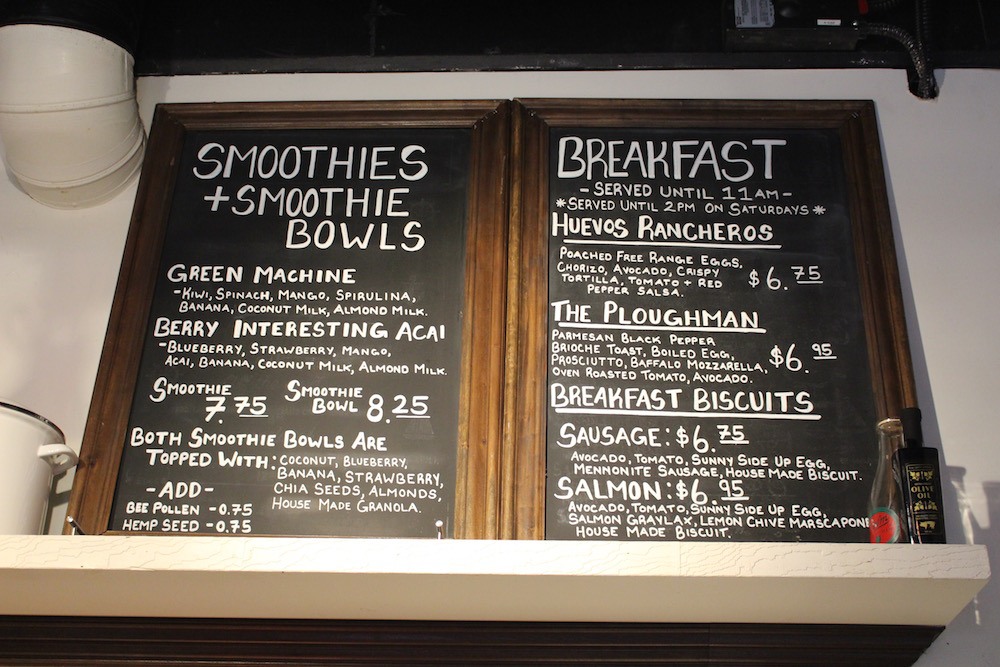 SMOOTHIES
+SMOOTHIE
BOWLS
GREEN MACHINE
-KIWI, SPINACH, MANGO, SPIRULINA,
BANANA, COCONUT MILK, ALMOND MILK.
BERRY INTERESTING ACAI
-BLUEBERRY, STRAWBERRY, MANGO,
ACAI, BANANA, COCONUT MILK, ALMOND MILK.
SMOOTHIE 7.75
SMOOTHIE BOWL 8.25
BOTH SMOOTHIE BOWLS ARE
TOPPED WITH: COCONUT, BLUEBERRY,
BANANA, STRAWBERRY,
CHIA SEEDS, ALMONDS,
HOUSE MADE GRANOLA.
-ADD-
BEE POLLEN -0.75
HEMP SEED -0.75
BREAKFAST
-SERVED UNTIL 11AM-
*SERVED UNTIL 2PM ON SATURDAYS*
HUEVOS RANCHEROS
POACHED FREE RANGE EGGS,
CHORIZO, AVOCADO, CRISPY
TORTILLA, TOMATO + RED
PEPPER SALSA.
$6.75
THE PLOUGHMAN
PARMESAN BLACK PEPPER
BRIOCHE TOAST, BOILED EGG,
PROSCIUTTO, BAFFALO MOZZARELLA,
OVEN ROASTED TOMATO, AVOCADO.
$6.95
BREAKFAST BISCUITS
SAUSAGE: $6.75
AVOCADO, TOMATO, SUNNY SIDE UP EGG,
MENNONITE SAUSAGE, HOUSE MADE BISCUIT.
SALMON: $6.95
AVOCADO, TOMATO, SUNNY SIDE UP EGG,
SALMON GRAVLAX, LEMON CHIVE MARSCAPONE
HOUSE MADE BISCUIT.
OLIVE
OIL